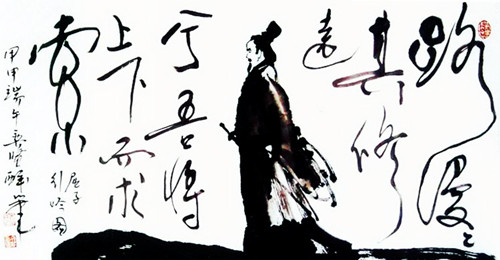 路漫〻
其修
远
兮吾将
上下而求
索
屈子
行吟图
甲申端午